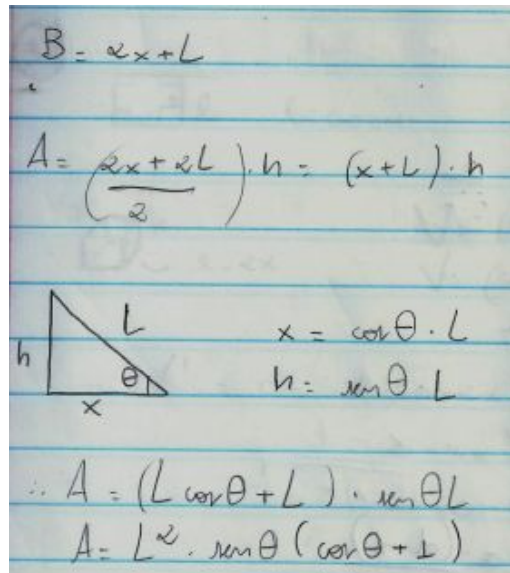 B = 2x + L
A = (2x + 2L / 2) . h = (x + L) . h
L
x = cos θ . L
h
θ
h = sen θ . L
x
∴ A = (L cos θ + L) . sen θ L
A = L² . sen θ (cos θ + 1)